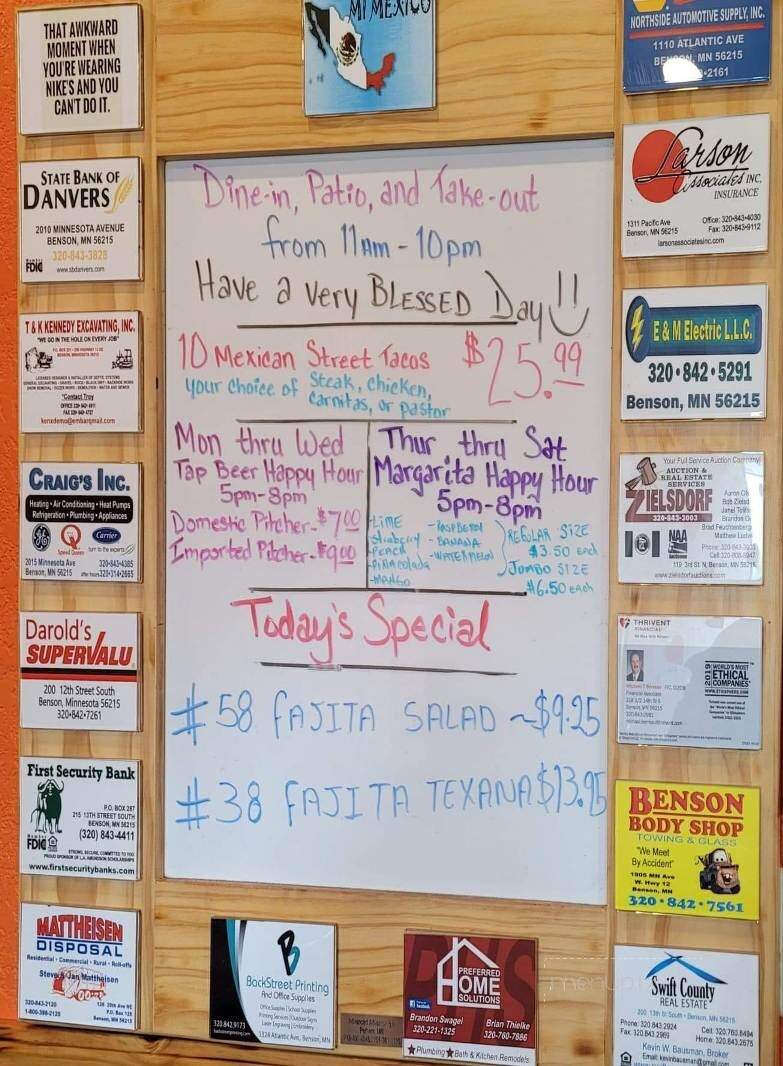 THAT AWKWARD
MOMENT WHEN
YOU'RE WEARING
NIKE'S AND YOU
CAN'T DO IT.
STATE BANK OF
DANVERS
2010 MINNESOTA AVENUE
BENSON, MN 56215
320-843-3828
FDIC
www.sbdanvers.com
T & K KENNEDY EXCAVATING, INC.
"WE GO IN THE HOLE ON EVERY JOB"
Contact Troy
kenxdemo@embarqmail.com
CRAIG'S INC.
Heating • Air Conditioning • Heat Pumps
Refrigeration • Plumbing • Appliances
Speed Queen
Carrier
turn to the experts
2015 Minnesota Ave
Benson, MN 56215
320-843-4385
after hours 320-314-2665
Darold's
SUPERVALU
200 12th Street South
Benson, Minnesota 56215
320-842-7261
First Security Bank
P.O. BOX 287
215 13TH STREET SOUTH
BENSON, MN 56215
(320) 843-4411
FDIC
www.firstsecuritybanks.com
MATTHEISEN
DISPOSAL
Residential • Commercial • Rural • Roll-offs
Steve & Jan Mattheisen
320-843-2120
1-800-398-2120
P.O. Box 128
Benson, MN 56215
MI MEXICO
Dine-in, Patio, and Take-out
from 11AM - 10pm
Have a very BLESSED Day!!
10 Mexican Street Tacos $25.99
your choice of Steak, chicken,
carnitas, or pastor
Mon thru Wed
Tap Beer Happy Hour
5pm-8pm
Domestic Pitcher - $7.00
Imported Pitcher - $9.00
Thur thru Sat
Margarita Happy Hour
5pm-8pm
- LIME
- Straberry
- PEACH
- PINA colada
- MANGO
- RASPBERRY
- BANANA
- WATERMELON
REGULAR SIZE
$3.50 EACH
JUMBO SIZE
$6.50 each
Today's Special
#58 FAJITA SALAD ~$9.25
#38 FAJITA TEXANA $13.95
B
BackStreet Printing
And Office Supplies
Office Supplies | School Supplies
Printing Services | Outdoor Signs
Laser Engraving | Embroidery
320.842.9173
1324 Atlantic Ave., Benson, MN
PHS
PREFERRED
HOME
SOLUTIONS
Brandon Swagel
320-221-1325
Brian Thielke
320-760-7886
Plumbing Bath & Kitchen Remodels
NORTHSIDE AUTOMOTIVE SUPPLY, INC.
1110 ATLANTIC AVE
BENSON, MN 56215
-2161
Larson
Associates INC.
INSURANCE
1311 Pacific Ave
Benson, MN 56215
Office: 320-843-4030
Fax: 320-843-9112
larsonassociatesinc.com
E & M Electric L.L.C.
320 • 842 • 5291
Benson, MN 56215
Your Full Service Auction Company
AUCTION &
REAL ESTATE
SERVICES
ZIELSDORF
320-843-3003
NAA
119 3rd St. N, Benson, MN 56215
www.zielsdorfauctions.com
THRIVENT
FINANCIAL
WORLD'S MOST
ETHICAL
COMPANIES
WWW.ETHISPHERE.COM
Financial Associate
BENSON
BODY SHOP
TOWING & GLASS
"We Meet
By Accident"
1805 MN Ave
W. Hwy 12
Benson, MN
320 • 842 • 7561
Swift County
REAL ESTATE
200 13th St South • Benson, MN 56215
Phone: 320.843.2924
Fax: 320.843.2969
Cell: 320.760.8494
Home: 320.843.2675
Kevin W. Bausman, Broker
Email: kevinbausman@gmail.com